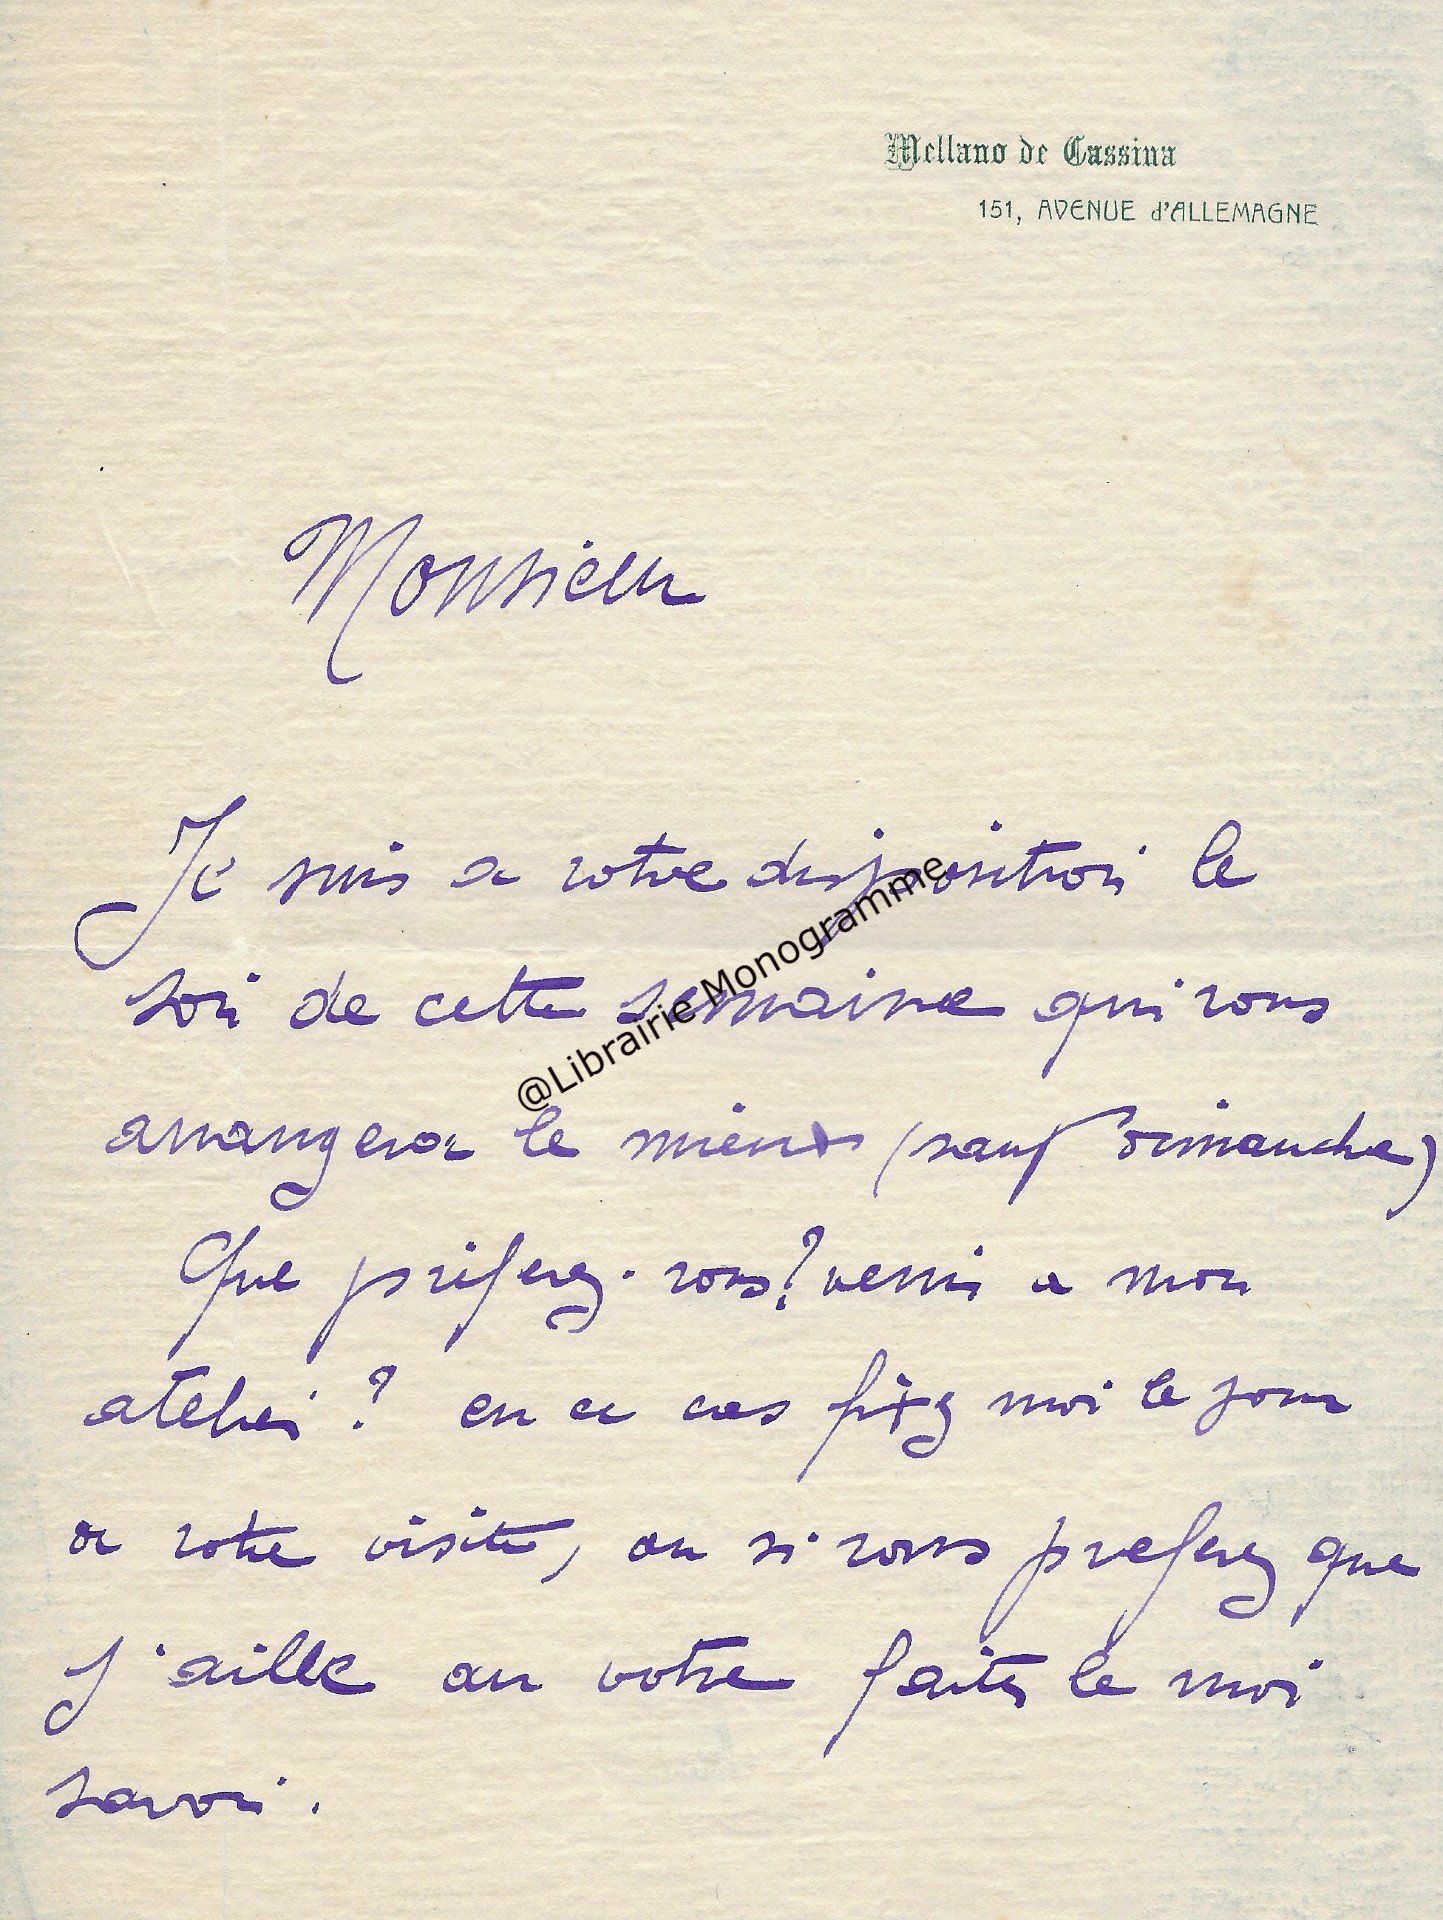 Mellano de Cassina
151, AVENUE d'ALLEMAGNE
Monsieur
Je suis a votre disposition le
soir de cette semaine qui vous
arrangera le mieux (sauf dimanche)
@Librairie Monogramme
Que préferez-vous? venir a mon
atelier? en ce cas fixez moi le jour
de votre visite, ou si vous preferez que
j'aille au votre faites le moi
savoir.